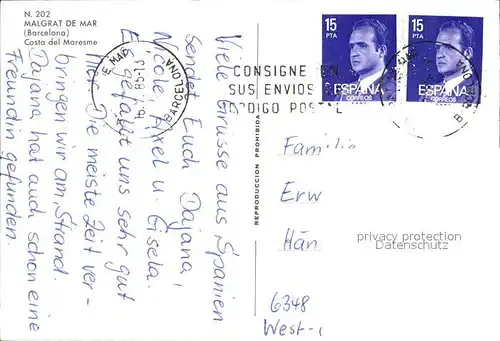 N. 202
MALGRAT DE MAR
(Barcelona)
Costa del Maresme
Viele Grüsse aus Spanien
sendet Euch Dajana,
Nicole, Axel u. Gisela.
Es gefällt uns sehr gut
hier. Die meiste Zeit ver-
bringen wir am Strand.
Dajana hat auch schon eine
Freundin gefunden.
REPRODUCCION PROHIBIDA
CONSIGNE EN
SUS ENVIOS
CODIGO POSTAL
BARCELONA
15
PTA
ESPAÑA
CORREOS
15
PTA
ESPAÑA
CORREOS
Familie
Erw
Hän
privacy protection
Datenschutz
6348
West-